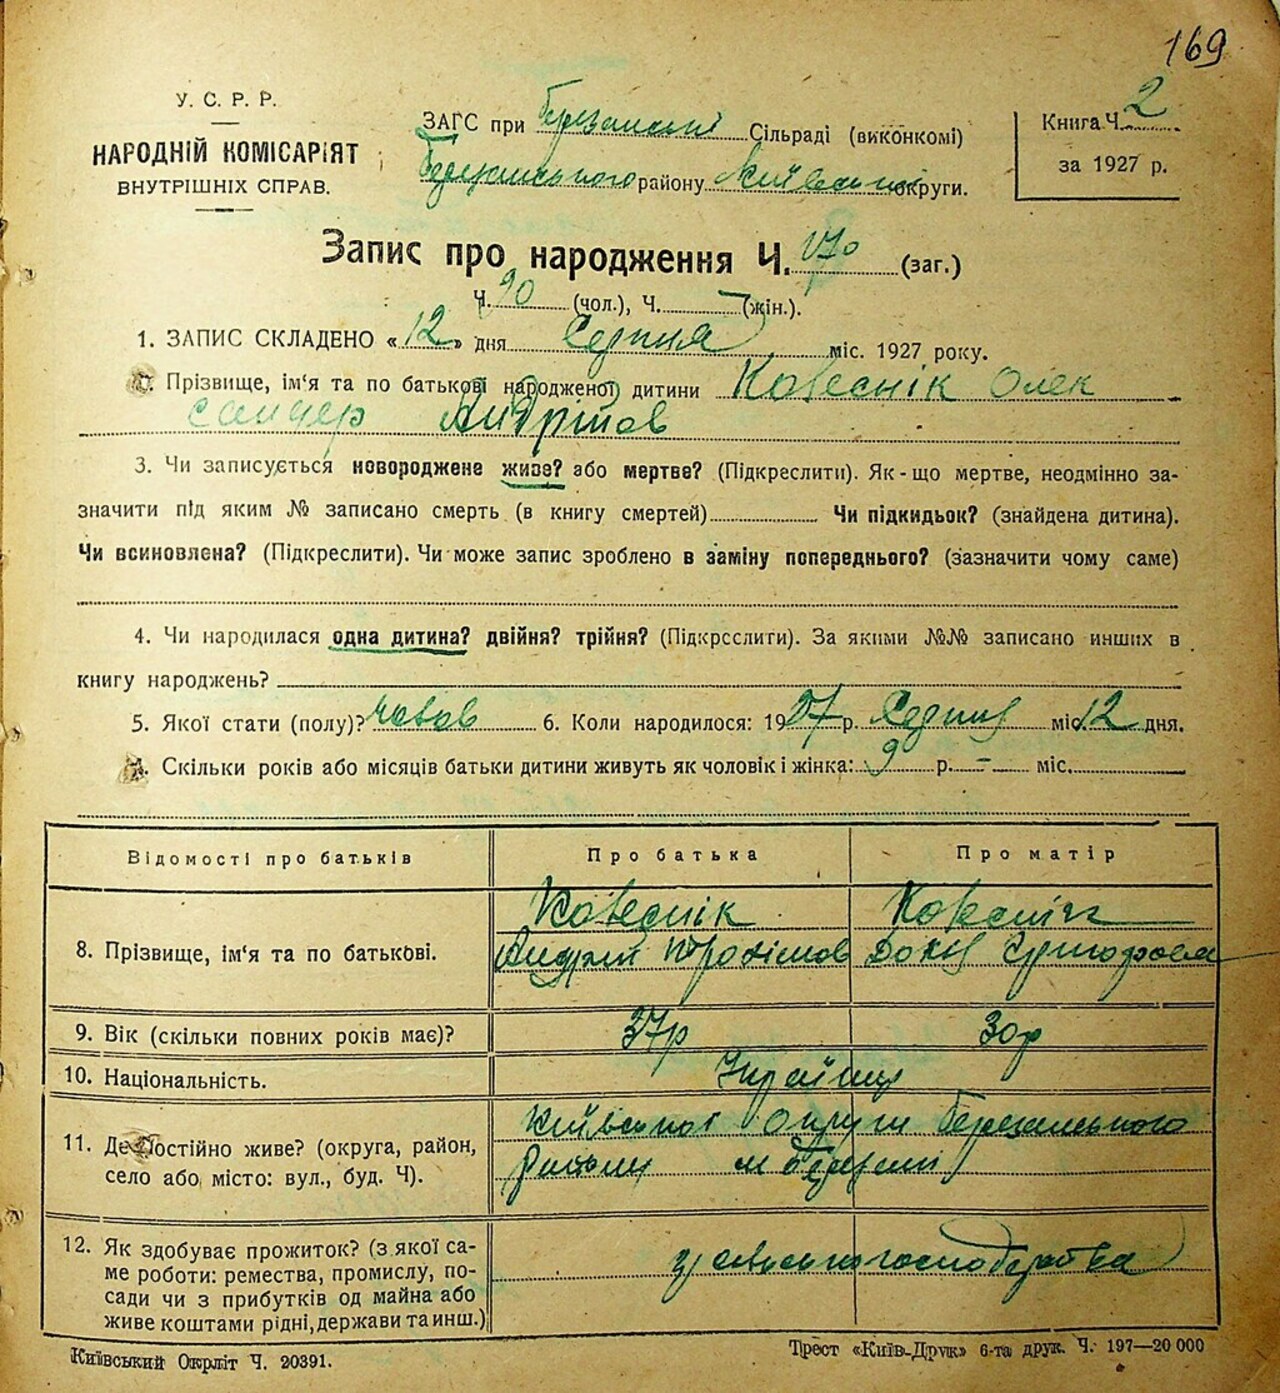 169
У. С. Р. Р.
НАРОДНІЙ КОМІСАРІЯТ
ВНУТРІШНІХ СПРАВ.
ЗАГС при Березанській Сільраді (виконкомі)
Березанського району Київської округи.
Книга Ч. 2
за 1927 р.
Запис про народження Ч. 170 (заг.)
Ч. 90 (чол.), Ч. — (жін.).
1. ЗАПИС СКЛАДЕНО «12» дня Серпня міс. 1927 року.
Прізвище, ім'я та по батькові народженої дитини Колеснік Олек
сандер Андріїов
3. Чи записується новороджене живе? або мертве? (Підкреслити). Як-що мертве, неодмінно за-
значити під яким № записано смерть (в книгу смертей) Чи підкидьок? (знайдена дитина).
Чи всиновлена? (Підкреслити). Чи може запис зроблено в заміну попереднього? (зазначити чому саме)
4. Чи народилася одна дитина? двійня? трійня? (Підкрсслити). За якими №№ записано инших в
книгу народжень?
5. Якої стати (полу)? чолов 6. Коли народилося: 1927 р. Серпня міс. 12 дня.
Скільки років або місяців батьки дитини живуть як чоловік і жінка: 9 р. - міс.
Відомості про батьків
Про батька
Про матір
8. Прізвище, ім'я та по батькові.
Колеснік
Андрій Трохімов
Колеснік
9. Вік (скільки повних років має)?
37р
30р
10. Національність.
Українці
11. Де постійно живе? (округа, район,
село або місто: вул., буд. Ч).
Київської Округи Березанського
Району м Березані
12. Як здобуває прожиток? (з якої са-
ме роботи: ремества, промислу, по-
сади чи з прибутків од майна або
живе коштами рідні, держави та инш.)
з сільського господарства
Київський Окрліт Ч. 20391.
Трест «Київ-Друк» 6-та друк. Ч. 197—20 000